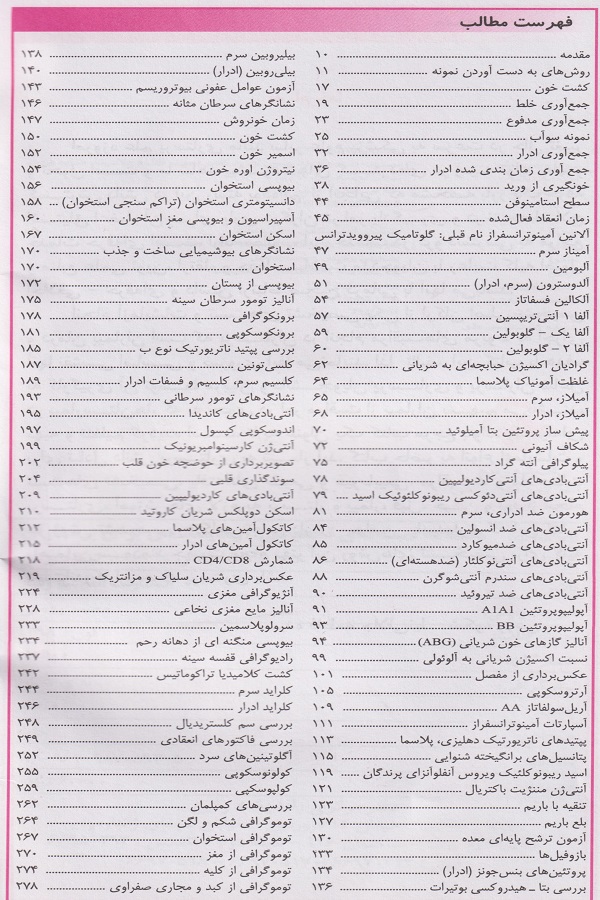 فهرست مطالب
مقدمه ........ ۱۰
روش‌های به دست آوردن نمونه ........ ۱۱
کشت خون ........ ۱۷
جمع‌آوری خلط ........ ۱۹
جمع‌آوری مدفوع ........ ۲۳
نمونه سوآب ........ ۲۵
جمع‌آوری ادرار ........ ۳۲
جمع آوری زمان بندی شده ادرار ........ ۳۶
خونگیری از ورید ........ ۳۸
سطح استامینوفن ........ ۴۴
زمان انعقاد فعال‌شده ........ ۴۵
آلانین آمینوترانسفراز نام قبلی: گلوتامیک پیروویدترانس
آمیناز سرم ........ ۴۷
آلبومین ........ ۴۹
آلدوسترون (سرم، ادرار) ........ ۵۱
آلکالین فسفاتاز ........ ۵۴
آلفا ۱ آنتی‌تریپسین ........ ۵۷
آلفا یک – گلوبولین ........ ۵۹
آلفا ۲ – گلوبولین ........ ۶۰
گرادیان اکسیژن حبابچه‌ای به شریانی ........ ۶۲
غلظت آمونیاک پلاسما ........ ۶۴
آمیلاز، سرم ........ ۶۵
آمیلاز، ادرار ........ ۶۸
پیش ساز پروتئین بتا آمیلوئید ........ ۷۰
شکاف آنیونی ........ ۷۲
پیلوگرافی آنته گراد ........ ۷۵
آنتی‌بادی‌های آنتی‌کاردیولیپین ........ ۷۸
آنتی‌بادی‌های آنتی‌دئوکسی ریبونوکلئوتیک اسید .... ۷۹
هورمون ضد ادراری، سرم ........ ۸۱
آنتی‌بادی‌های ضد انسولین ........ ۸۴
آنتی‌بادی‌های ضدمیوکارد ........ ۸۵
آنتی‌بادی‌های آنتی‌نوکلئار (ضدهسته‌ای) ........ ۸۶
آنتی‌بادی‌های سندرم آنتی‌شوگرن ........ ۸۸
آنتی‌بادی‌های ضد تیروئید ........ ۹۰
آپولیپوپروتئین A1A1 ........ ۹۱
آپولیپوپروتئین BB ........ ۹۳
آنالیز گازهای خون شریانی (ABG) ........ ۹۴
نسبت اکسیژن شریانی به آلوئولی ........ ۹۹
عکس‌برداری از مفصل ........ ۱۰۱
آرتروسکوپی ........ ۱۰۵
آریل‌سولفاتاز AA ........ ۱۰۹
آسپارتات آمینوترانسفراز ........ ۱۱۱
پپتیدهای ناتریورتیک دهلیزی، پلاسما ........ ۱۱۳
پتانسیل‌های برانگیخته شنوایی ........ ۱۱۵
اسید ریبونوکلئیک ویروس آنفلوآنزای پرندگان ..... ۱۱۹
آنتی‌ژن مننژیت باکتریال ........ ۱۲۱
تنقیه با باریم ........ ۱۲۳
بلع باریم ........ ۱۲۷
آزمون ترشح پایه‌ای معده ........ ۱۳۰
بازوفیل‌ها ........ ۱۳۳
پروتئین‌های بنس‌جونز (ادرار) ........ ۱۳۴
بررسی بتا – هیدروکسی بوتیرات ........ ۱۳۶
بیلیروبین سرم ........ ۱۳۸
بیلی‌روبین (ادرار) ........ ۱۴۰
آزمون عوامل عفونی بیوتروریسم ........ ۱۴۳
نشانگرهای سرطان مثانه ........ ۱۴۶
زمان خونروش ........ ۱۴۷
کشت خون ........ ۱۵۰
اسمیر خون ........ ۱۵۲
نیتروژن اوره خون ........ ۱۵۴
بیوپسی استخوان ........ ۱۵۶
دانسیتومتری استخوان (تراکم سنجی استخوان) ... ۱۵۸
آسپیراسیون و بیوپسی مغز استخوان ........ ۱۶۰
اسکن استخوان ........ ۱۶۷
نشانگرهای بیوشیمیایی ساخت و جذب ........ ۱۷۰
استخوان ........ ۱۷۰
بیوپسی از پستان ........ ۱۷۲
آنالیز تومور سرطان سینه ........ ۱۷۵
برونکوگرافی ........ ۱۷۸
برونکوسکوپی ........ ۱۸۱
بررسی پپتید ناتریورتیک نوع ب ........ ۱۸۵
کلسی‌تونین ........ ۱۸۷
کلسیم سرم، کلسیم و فسفات ادرار ........ ۱۸۹
نشانگرهای تومور سرطانی ........ ۱۹۳
آنتی‌بادی‌های کاندیدا ........ ۱۹۵
اندوسکوپی کپسول ........ ۱۹۷
آنتی‌ژن کارسینوامبریونیک ........ ۱۹۹
تصویربرداری از حوضچه خون قلب ........ ۲۰۲
سوندگذاری قلبی ........ ۲۰۴
آنتی‌بادی‌های کاردیولیپین ........ ۲۰۹
اسکن دوپلکس شریان کاروتید ........ ۲۱۰
کاتکول‌آمین‌های پلاسما ........ ۲۱۲
کاتکول آمین‌های ادرار ........ ۲۱۵
شمارش CD4/CD8 ........ ۲۱۸
عکس‌برداری شریان سلیاک و مزانتریک ........ ۲۱۹
آنژیوگرافی مغزی ........ ۲۲۴
آنالیز مایع مغزی نخاعی ........ ۲۲۸
سرولوپلاسمین ........ ۲۳۳
بیوپسی منگنه ای از دهانه رحم ........ ۲۳۴
رادیوگرافی قفسه سینه ........ ۲۳۷
کشت کلامیدیا تراکوماتیس ........ ۲۴۲
کلراید سرم ........ ۲۴۴
کلراید ادرار ........ ۲۴۶
بررسی سم کلستریدیال ........ ۲۴۸
بررسی فاکتورهای انعقادی ........ ۲۴۹
آگلوتینین‌های سرد ........ ۲۵۲
کولونوسکوپی ........ ۲۵۵
کولپوسکپی ........ ۲۵۹
بررسی‌های کمپلمان ........ ۲۶۲
توموگرافی شکم و لگن ........ ۲۶۴
توموگرافی استخوان ........ ۲۶۷
توموگرافی از مغز ........ ۲۷۰
توموگرافی از کلیه ........ ۲۷۴
توموگرافی از کبد و مجاری صفراوی ........ ۲۷۸